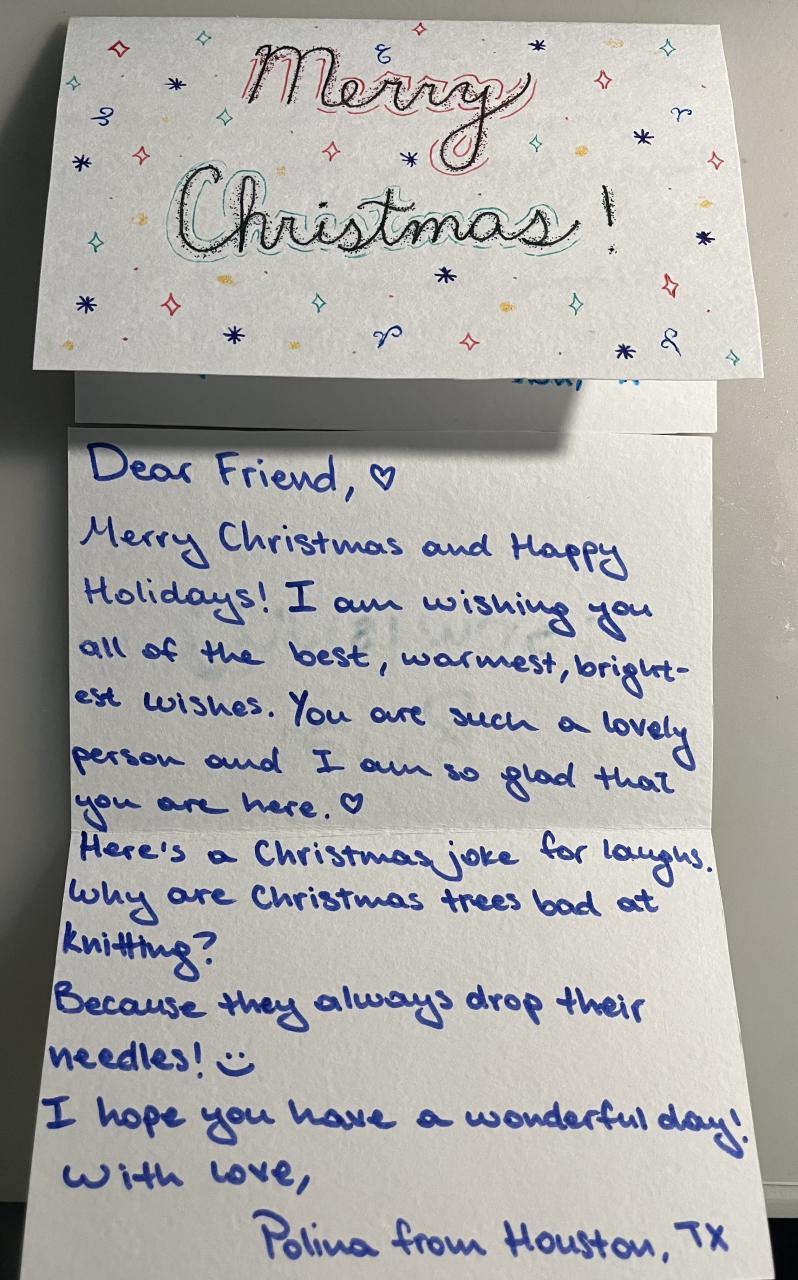 Merry
Christmas!
Dear Friend, ♡
Merry Christmas and Happy
Holidays! I am wishing you
all of the best, warmest, bright-
est wishes. You are such a lovely
person and I am so glad that
you are here. ♡
Here's a Christmas joke for laughs.
Why are Christmas trees bad at
knitting?
Because they always drop their
needles! :)
I hope you have a wonderful day!
With love,
Polina from Houston, TX